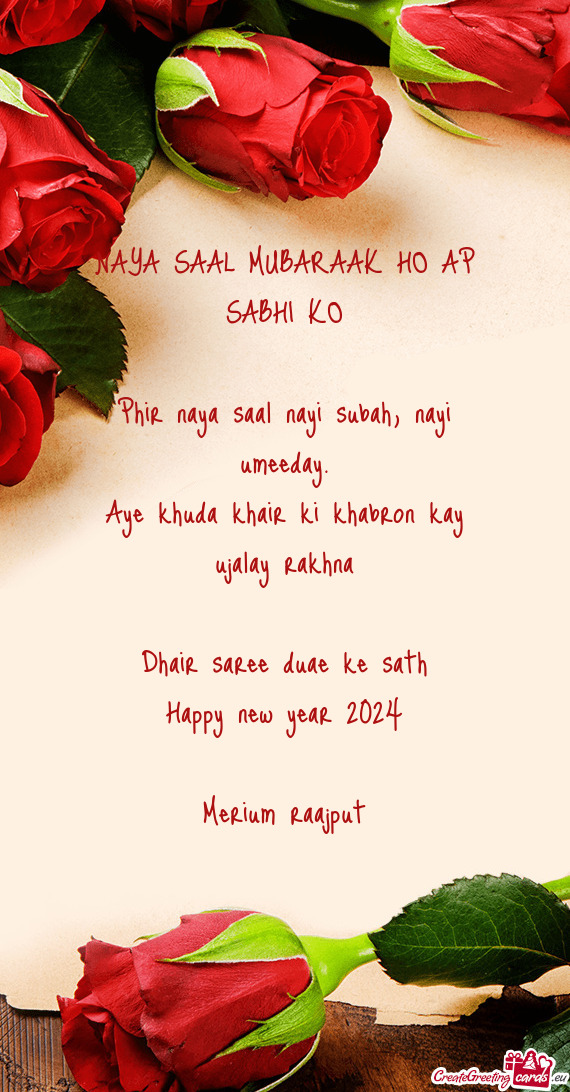 NAYA SAAL MUBARAAK HO AP
SABHI KO
Phir naya saal nayi subah, nayi
umeeday.
Aye khuda khair ki khabron kay
ujalay rakhna
Dhair saree duae ke sath
Happy new year 2024
Merium raajput
CreateGreeting cards.eu